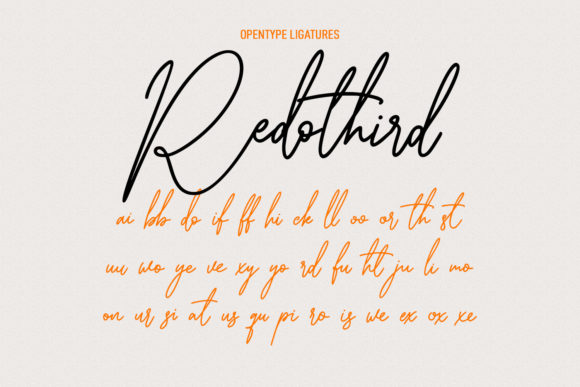 OPENTYPE LIGATURES
Redothird
ai bb do if ff hi ck ll oo or th st
uu wo ye ve xy yo rd fu ht ju li mo
on ur si at us qu pi ro is we ex ox xe